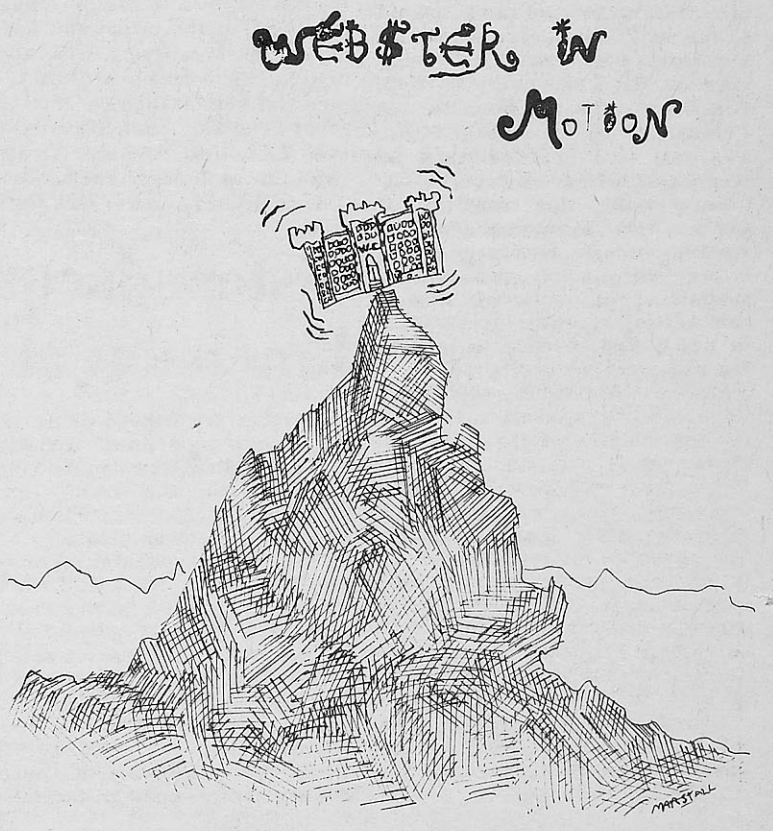 WEB$TER IN
MOTION
MARSTALL